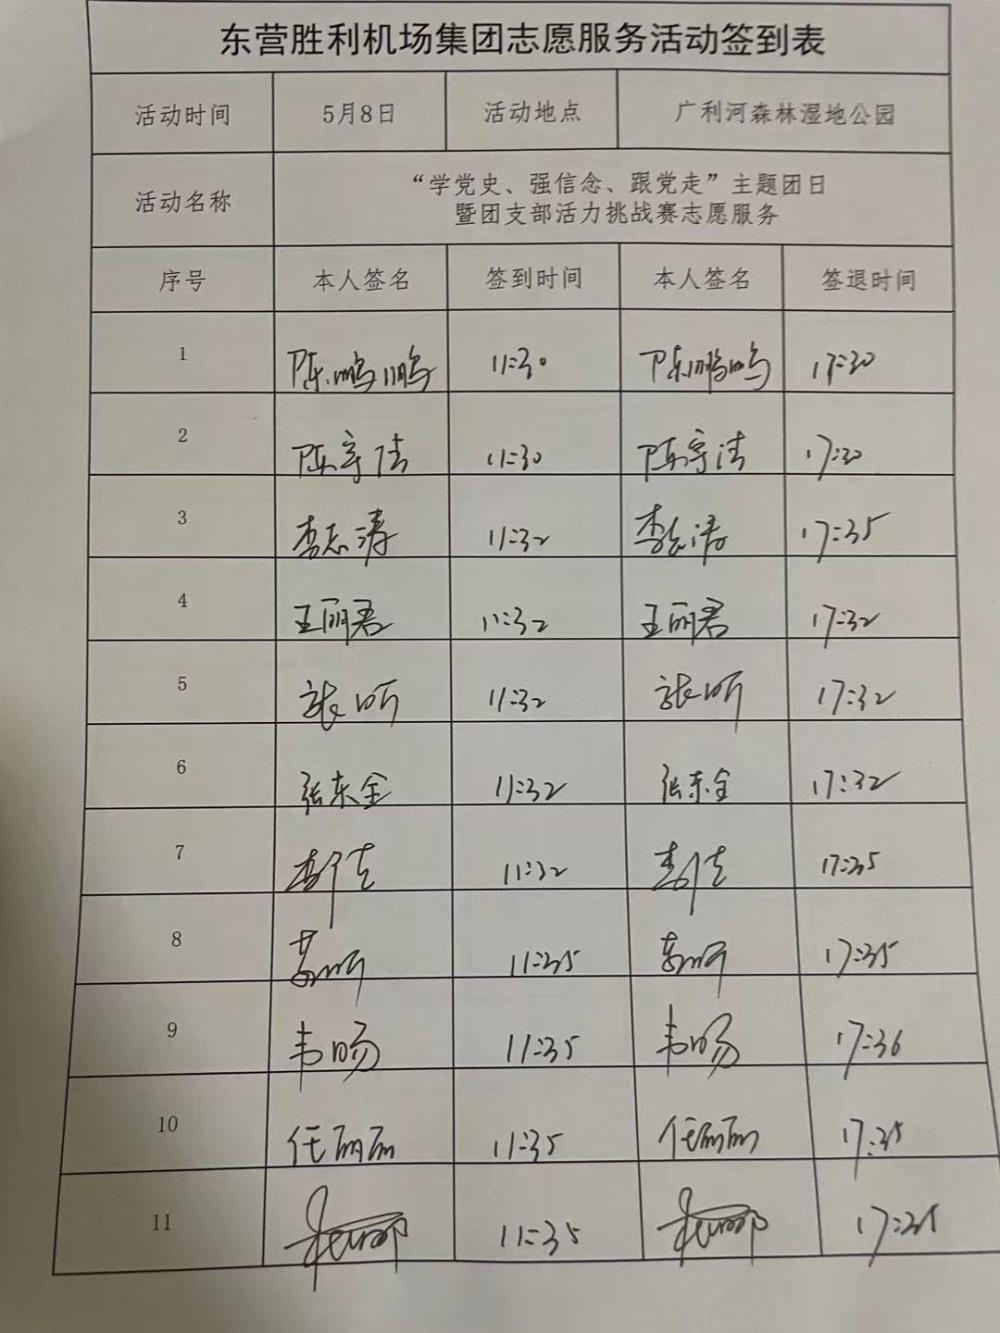 东营胜利机场集团志愿服务活动签到表
活动时间 5月8日 活动地点 广利河森林湿地公园
活动名称 “学党史、强信念、跟党走”主题团日
暨团支部活力挑战赛志愿服务
序号 本人签名 签到时间 本人签名 签退时间
1 陈鹏鹏 11:30 陈鹏鹏 17:30
2 陈 11:30 陈 17:30
3 李志涛 11:32 李志涛 17:35
4 王丽君 11:32 王丽君 17:32
5 张昕 11:32 张昕 17:32
6 张东金 11:32 张东金 17:32
7 李佳 11:32 李佳 17:35
8 11:35 17:35
9 韦旸 11:35 韦旸 17:36
10 任丽丽 11:35 任丽丽 17:35
11 11:35